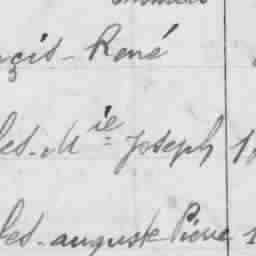 çis - René
les - Mie Joseph 1
les - auguste Pierre 1